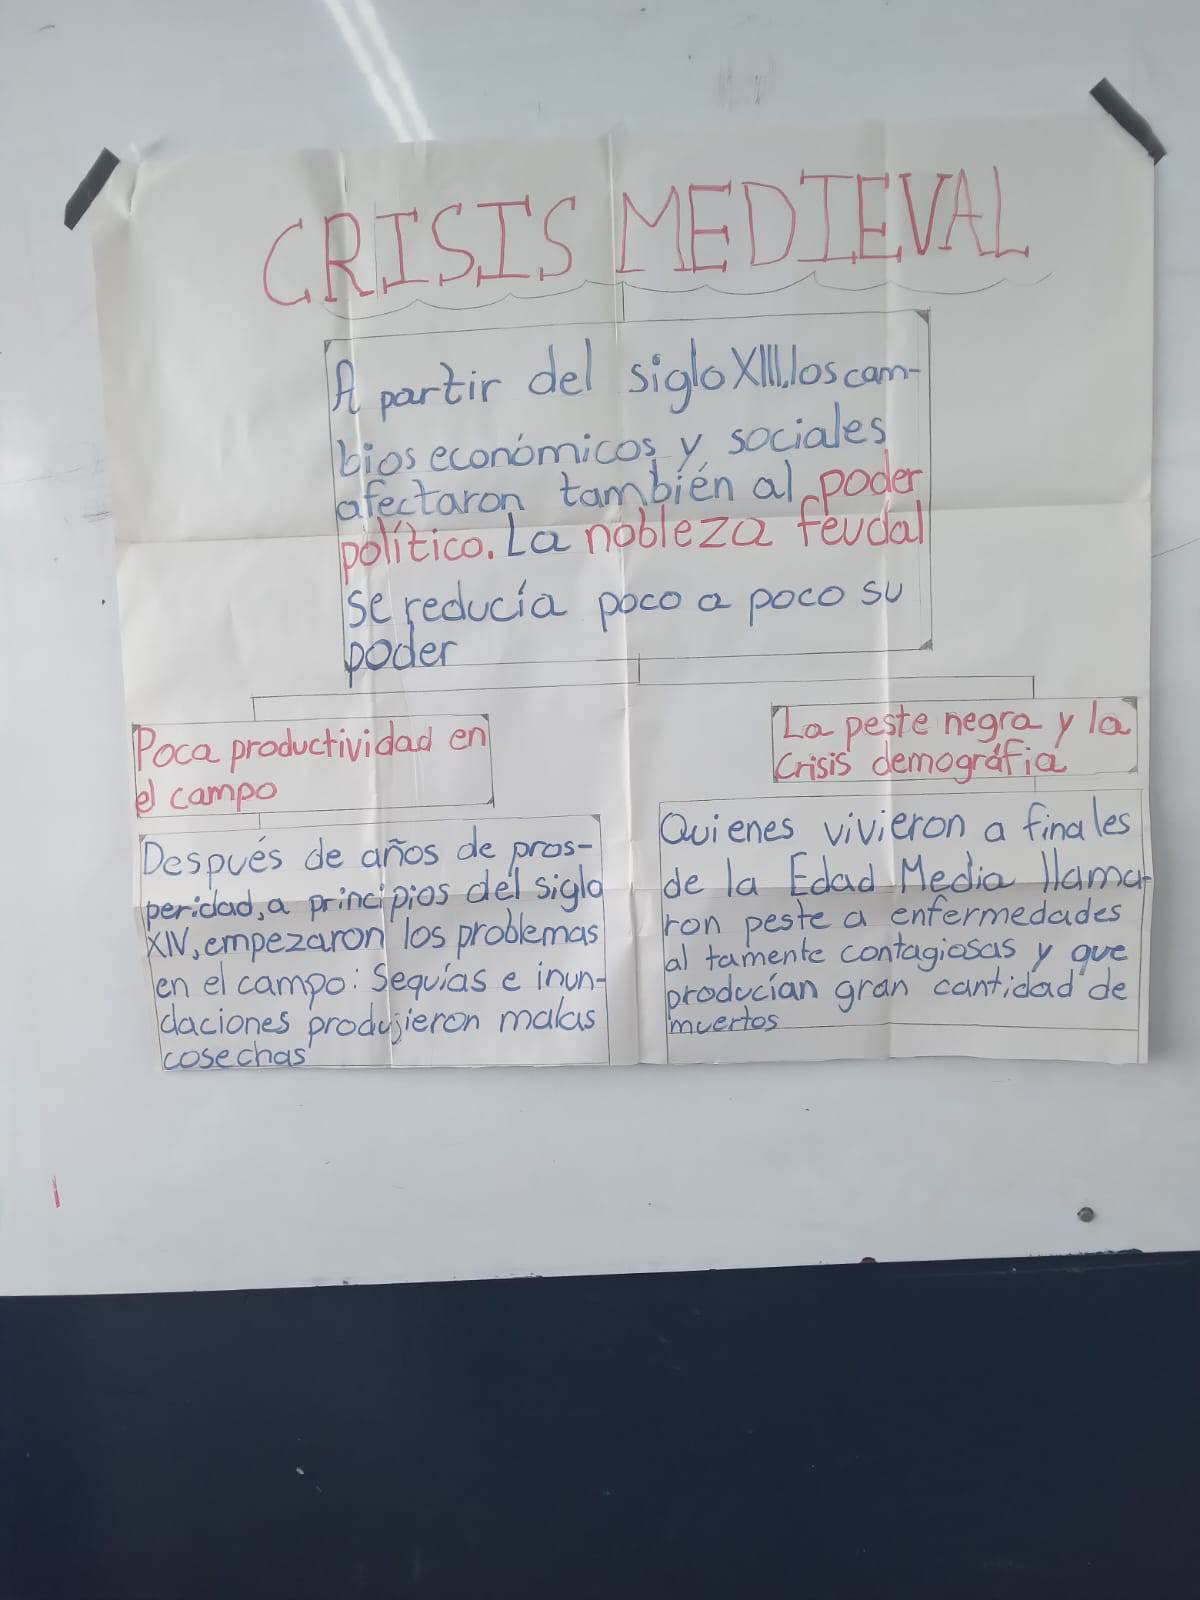 CRISIS MEDIEVAL
A partir del siglo XIII, los cam-
bios económicos y sociales
afectaron también al poder
político. La nobleza feudal
se reducía poco a poco su
poder
Poca productividad en
el campo
La peste negra y la
crisis demográfia
Después de años de pros-
peridad, a principios del siglo
XIV, empezaron los problemas
en el campo: Sequías e inun-
daciones produjieron malas
cosechas
Quienes vivieron a finales
de la Edad Media llama-
ron peste a enfermedades
al tamente contagiosas y que
producían gran cantidad de
muertos